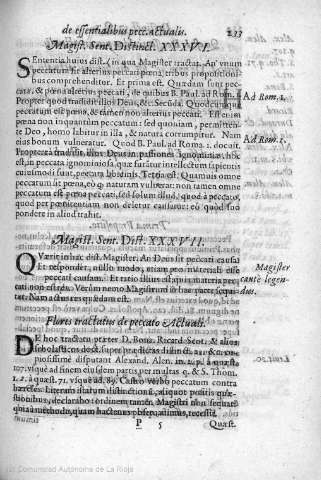 de essentialibus pecc. actualis. 233
Magist. Sent. Distinct. XXXVI.
Sententia huius dist. (in qua Magister tractat, An vnum
peccatum sit alterius peccati pœna, tribus propositioni-
bus comprehenditur. Et prima est. Quædam sunt pecca-
ta, & pœna alterius peccati, de quibus B. Paul. ad Rom. 1.
Propter quod tradidit illos Deus, &c. Secūda. Quodcunque
peccatum est pœna, & tamen non alterius peccati. Est enim
pœna non in quantum peccatum: sed quoniam, permitten-
te Deo, homo labitur in illa, & natura corrumpitur. Nam
eius bonum vulneratur. Quod B. Paul. ad Roma. 1. docuit.
Propterea tradidit illos Deus in passiones ignominiæ, hoc
est, in peccata ignominiosa quæ
cuiusmodi sunt, peccata libidinis. Tertia est. Quamuis omne
peccatum sit pœna, eo quod naturam vulnerat: non tamen omne
peccatum est pœna peccati, sed solum illud, quod à peccato,
quod per pœnitentiam non deletur causatur: eò quod suo
pondere in aliud trahit.
Ad Rom. 1.
Ad Rom. 1.
Magist. Sent. Dist. XXXVII.
Quærit in hac dist. Magister. An Deus sit peccati causa?
Et respondet, nullo modo, etiam pro materiali esse
peccati causam. Et ratio illius est, quia materia pec-
cati non est res. Verùm nemo Magistrum in hac parte sequi-
tur. Nam actus res quædam est.
Magister
cautè legen-
dus.
Flores tractatus de peccato Actuali.
De hoc tractatu præter D. Bona. Ricard. Scot. & alios
scholasticos doct. super prædictas distinct.
piosissimè disputant Alexand. Alen. in 2. p. à quæst.
107. vsque ad finem eiusdem partis per multas q. & S. Thom.
1. 2. à quæst. 71. vsque ad. 89. Castro verbo peccatum contra
hæreses. Literalis
nes, declarabo: ordinem tamen Magistri non sequar:
quia
P 5 Quæst.
Comunidad Autónoma de La Rioja